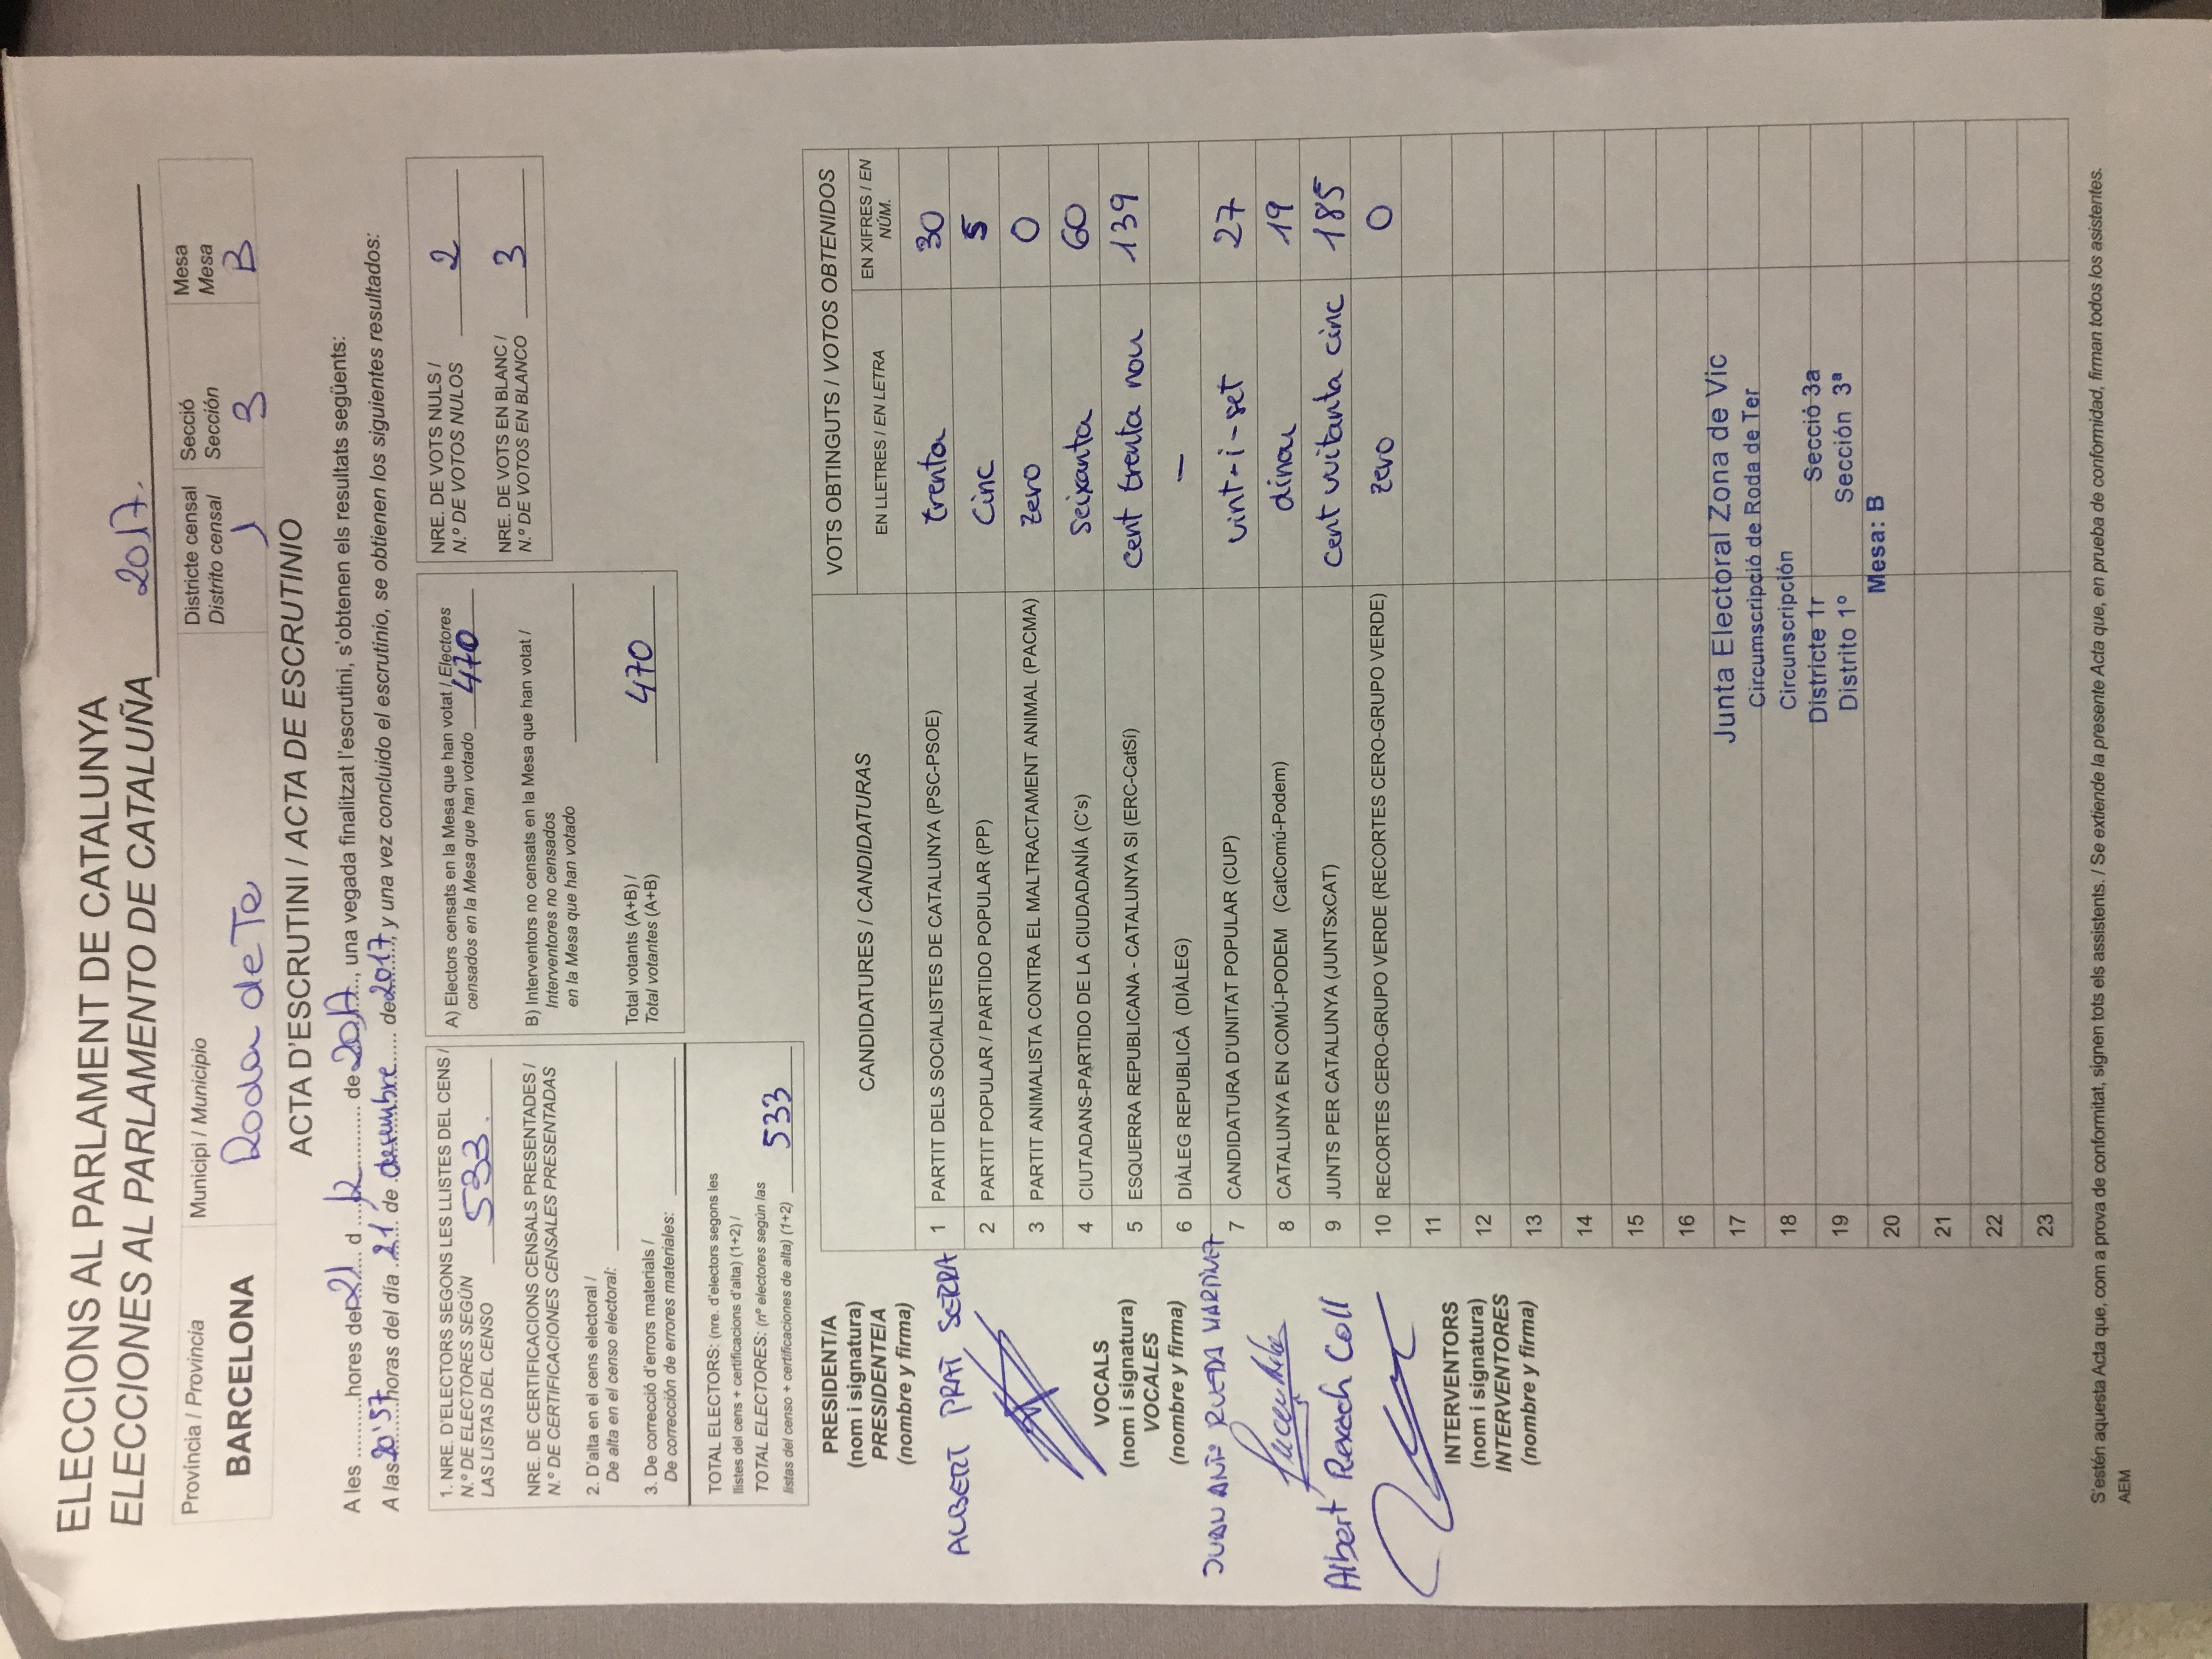 ELECCIONS AL PARLAMENT DE CATALUNYA
ELECCIONES AL PARLAMENTO DE CATALUÑA 2017.
Província / Provincia
BARCELONA
Municipi / Municipio
Roda de Te
Districte censal
Distrito censal
1
Secció
Sección
3
Mesa
Mesa
B
ACTA D'ESCRUTINI / ACTA DE ESCRUTINIO
A les ..........hores del 21 d 12 de 2017, una vegada finalitzat l'escrutini, s'obtenen els resultats següents:
A las 20'57 horas del día 21 de desembre de 2017, y una vez concluido el escrutinio, se obtienen los siguientes resultados:
1. NRE. D'ELECTORS SEGONS LES LLISTES DEL CENS /
N.º DE ELECTORES SEGÚN
LAS LISTAS DEL CENSO 533.
NRE. DE CERTIFICACIONS CENSALS PRESENTADES /
N.º DE CERTIFICACIONES CENSALES PRESENTADAS
2. D'alta en el cens electoral /
De alta en el censo electoral:
3. De correcció d'errors materials /
De corrección de errores materiales:
TOTAL ELECTORS: (nre. d'electors segons les
llistes del cens + certificacions d'alta) (1+2) /
TOTAL ELECTORES: (nº electores según las
listas del censo + certificaciones de alta) (1+2) 533
A) Electors censats en la Mesa que han votat / Electores
censados en la Mesa que han votado 470
B) Interventors no censats en la Mesa que han votat /
Interventores no censados
en la Mesa que han votado
Total votants (A+B) /
Total votantes (A+B) 470
NRE. DE VOTS NULS /
N.º DE VOTOS NULOS 2
NRE. DE VOTS EN BLANC /
N.º DE VOTOS EN BLANCO 3
PRESIDENT/A
(nom i signatura)
PRESIDENTE/A
(nombre y firma)
ALBERT PRAT SERRA
VOCALS
(nom i signatura)
VOCALES
(nombre y firma)
JUAN ANTº RUEDA MARTINEZ
Albert Rexach Coll
INTERVENTORS
(nom i signatura)
INTERVENTORES
(nombre y firma)
CANDIDATURES / CANDIDATURAS
VOTS OBTINGUTS / VOTOS OBTENIDOS
EN LLETRES / EN LETRA
EN XIFRES / EN
NÚM.
1 PARTIT DELS SOCIALISTES DE CATALUNYA (PSC-PSOE) trenta 30
2 PARTIT POPULAR / PARTIDO POPULAR (PP) Cinc 5
3 PARTIT ANIMALISTA CONTRA EL MALTRACTAMENT ANIMAL (PACMA) zero 0
4 CIUTADANS-PARTIDO DE LA CIUDADANÍA (C's) seixanta 60
5 ESQUERRA REPUBLICANA - CATALUNYA SI (ERC-CatSí) cent trenta nou 139
6 DIÀLEG REPUBLICÀ (DIÀLEG) —
7 CANDIDATURA D'UNITAT POPULAR (CUP) vint-i-set 27
8 CATALUNYA EN COMÚ-PODEM (CatComú-Podem) dinou 19
9 JUNTS PER CATALUNYA (JUNTSxCAT) cent vuitanta cinc 185
10 RECORTES CERO-GRUPO VERDE (RECORTES CERO-GRUPO VERDE) zero 0
11
12
13
14
15
16
17
18
19
20
21
22
23
Junta Electoral Zona de Vic
Circumscripció de Roda de Ter
Circunscripción
Districte 1r Secció 3a
Distrito 1º Sección 3ª
Mesa: B
S'estén aquesta Acta que, com a prova de conformitat, signen tots els assistents. / Se extiende la presente Acta que, en prueba de conformidad, firman todos los asistentes.
AEM